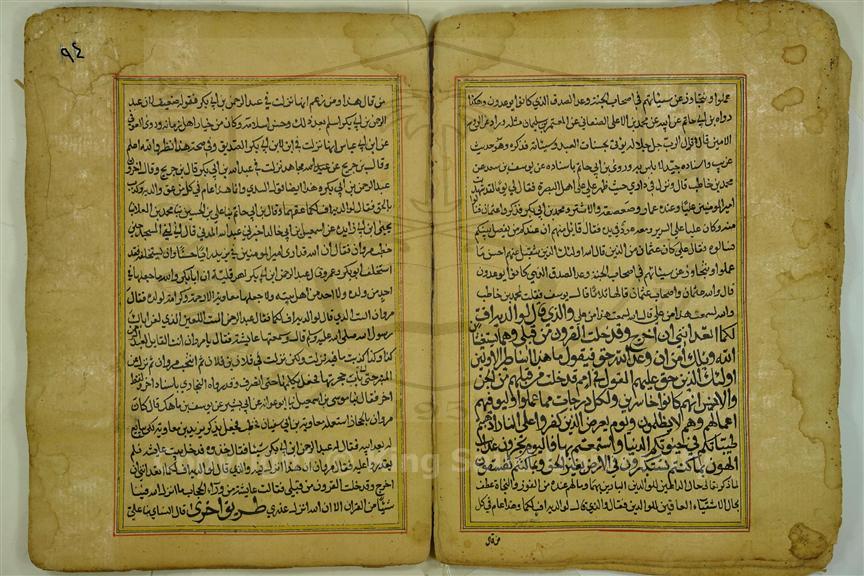 عملوا ونتجاوز عن سيئاتهم في اصحاب الجنة وعد الصدق الذي كانوا يوعدون وهكذا
رواه ابن ابي حاتم عن ابيه عن محمد بن عبد الاعلى الصنعاني عن المعتمر بن سليمان مثله وزاد عن الروح
الامين قال قال الرب جل جلاله يؤتى بحسنات العبد وسيئاته فذكره وهو حديث
غريب واسناده جيد لا باس به وروى ابن ابي حاتم باسناده عن يوسف بن سعد عن
محمد بن حاطب قال ونزل في داري حيث ظهر علي على اهل البصرة فقال لي يوما لقد شهدت
امير المومنين عليا وعنده عمار وصعصعة والاشتر ومحمد بن ابي بكر فذكروا عثمان فنالوا
منه وكان علي على السرير ومعه عود في يده فقال قائل منهم ان عندكم من يفصل بينكم
فسالوه فقال علي كان عثمان من الذين قال الله اولئك الذين نتقبل عنهم احسن ما
عملوا ونتجاوز عن سيئاتهم في اصحاب الجنة وعد الصدق الذي كانوا يوعدون
قال والله عثمان واصحاب عثمان قالها ثلاثا قال يوسف فقلت لمحمد بن حاطب
والله لسمعت هذا من علي قال الله لسمعت هذا من علي والذي قال لوالديه اف
لكما اتعدانني ان اخرج وقد خلت القرون من قبلي وهما يستغيثان
الله ويلك امن ان وعد الله حق فيقول ما هذا الا اساطير الاولين
اولئك الذين حق عليهم القول في امم قد خلت من قبلهم من الجن
والانس انهم كانوا خاسرين ولكل درجات مما عملوا وليوفيهم
اعمالهم وهم لا يظلمون ويوم يعرض الذين كفروا على النار اذهبتم
طيباتكم في حياتكم الدنيا واستمتعتم بها فاليوم تجزون عذاب
الهون بما كنتم تستكبرون في الارض بغير الحق وبما كنتم تفسقون
لما ذكر تعالى حال الداعين للوالدين البارين بهما وما لهم عنده من الفوز والنجاة عطف
بحال الاشقياء العاقين للوالدين فقال والذي قال لوالديه اف لكما وهذا عام في كل
من قال
٩٤
من قال هذا ومن زعم انها نزلت في عبد الرحمن بن ابي بكر فقوله ضعيف لان عبد
الرحمن بن ابي بكر اسلم بعد ذلك وحسن اسلامه وكان من خيار اهل زمانه وروى العوفي
عن ابن عباس انها نزلت في ابن لابي بكر الصديق وفي صحة هذا نظر والله اعلم
وقال ابن جريج عن مجاهد نزلت في عبد الله بن ابي بكر قال ابن جريج وقال اخرون
عبد الرحمن بن ابي بكر وهذا ايضا قول السدي وانما هذا عام في كل من عق والديه وكذب
بالحق فقال لوالديه اف لكما عقهما وقال ابن ابي حاتم ثنا علي بن الحسين ثنا محمد بن العلاء ثنا
يحيى بن ابي زايدة عن اسمعيل بن ابي خالد اخبرني عبد الله المديني قال اني لفي المسجد حين
خطب مروان فقال ان الله قد ارى امير المومنين في يزيد رايا حسنا وان يستخلفه فقد
استخلف ابو بكر وعمر فقال عبد الرحمن بن ابي بكر اهرقلية ان ابا بكر والله ما جعلها في
احد من ولده ولا احد من اهل بيته ولا جعلها معاوية الا رحمة وكرامة لولده فقال
مروان الست الذي قال لوالديه اف لكما فقال عبد الرحمن الست ابن اللعين الذي لعن اباك
رسول الله صلى الله عليه وسلم قال وسمعتها عائشة فقالت يا مروان انت القائل لعبد الرحمن
كذا وكذا كذبت ما فيه نزلت ولكن نزلت في فلان بن فلان ثم انتحب مروان ثم نزل عن
المنبر حتى اتى باب حجرتها فجعل يكلمها حتى انصرف وقد رواه البخاري باسناد اخر ولفظ
اخر فقال ثنا موسى بن اسمعيل ثنا ابو عوانة عن ابي بشر عن يوسف بن ماهك قال كان
مروان بالحجاز استعمله معاوية بن ابي سفيان فخطب فجعل يذكر يزيد بن معاوية لكي يبايع
له بعد ابيه فقال له عبد الرحمن بن ابي بكر شيئا فقال خذوه فدخل بيت عائشة فلم
يقدروا عليه فقال مروان ان هذا الذي انزل فيه والذي قال لوالديه اف لكما اتعدانني ان
اخرج وقد خلت القرون من قبلي فقالت عائشة من وراء الحجاب ما انزل الله فينا
شيئا من القران الا ان الله انزل عذري طريق اخرى قال النسائي ثنا علي